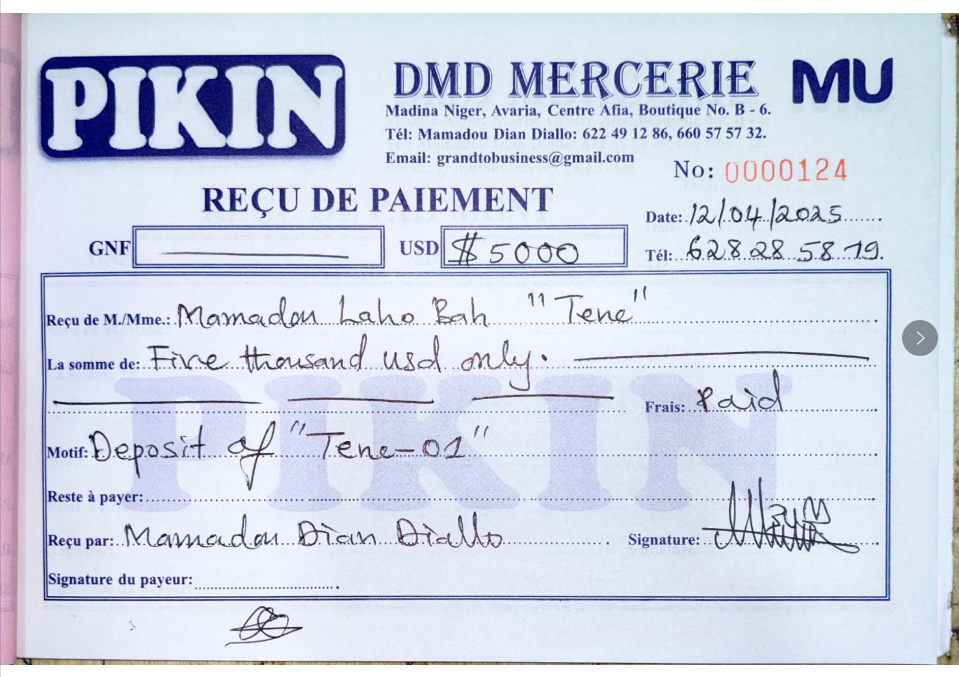 PIKIN
DMD MERCERIE MU
Madina Niger, Avaria, Centre Afia, Boutique No. B - 6.
Tél: Mamadou Dian Diallo: 622 49 12 86, 660 57 57 32.
Email: grandtobusiness@gmail.com
No: 0000124
REÇU DE PAIEMENT
Date: 12/04/2025
GNF USD $5000
Tél: 628 28 58 19.
Reçu de M./Mme.: Mamadou Laho Bah "Tene"
La somme de: Five thousand usd only.
Frais: Paid
Motif: Deposit of "Tene-01"
PIKIN
Reste à payer:
Reçu par: Mamadou Dian Diallo Signature:
Signature du payeur: